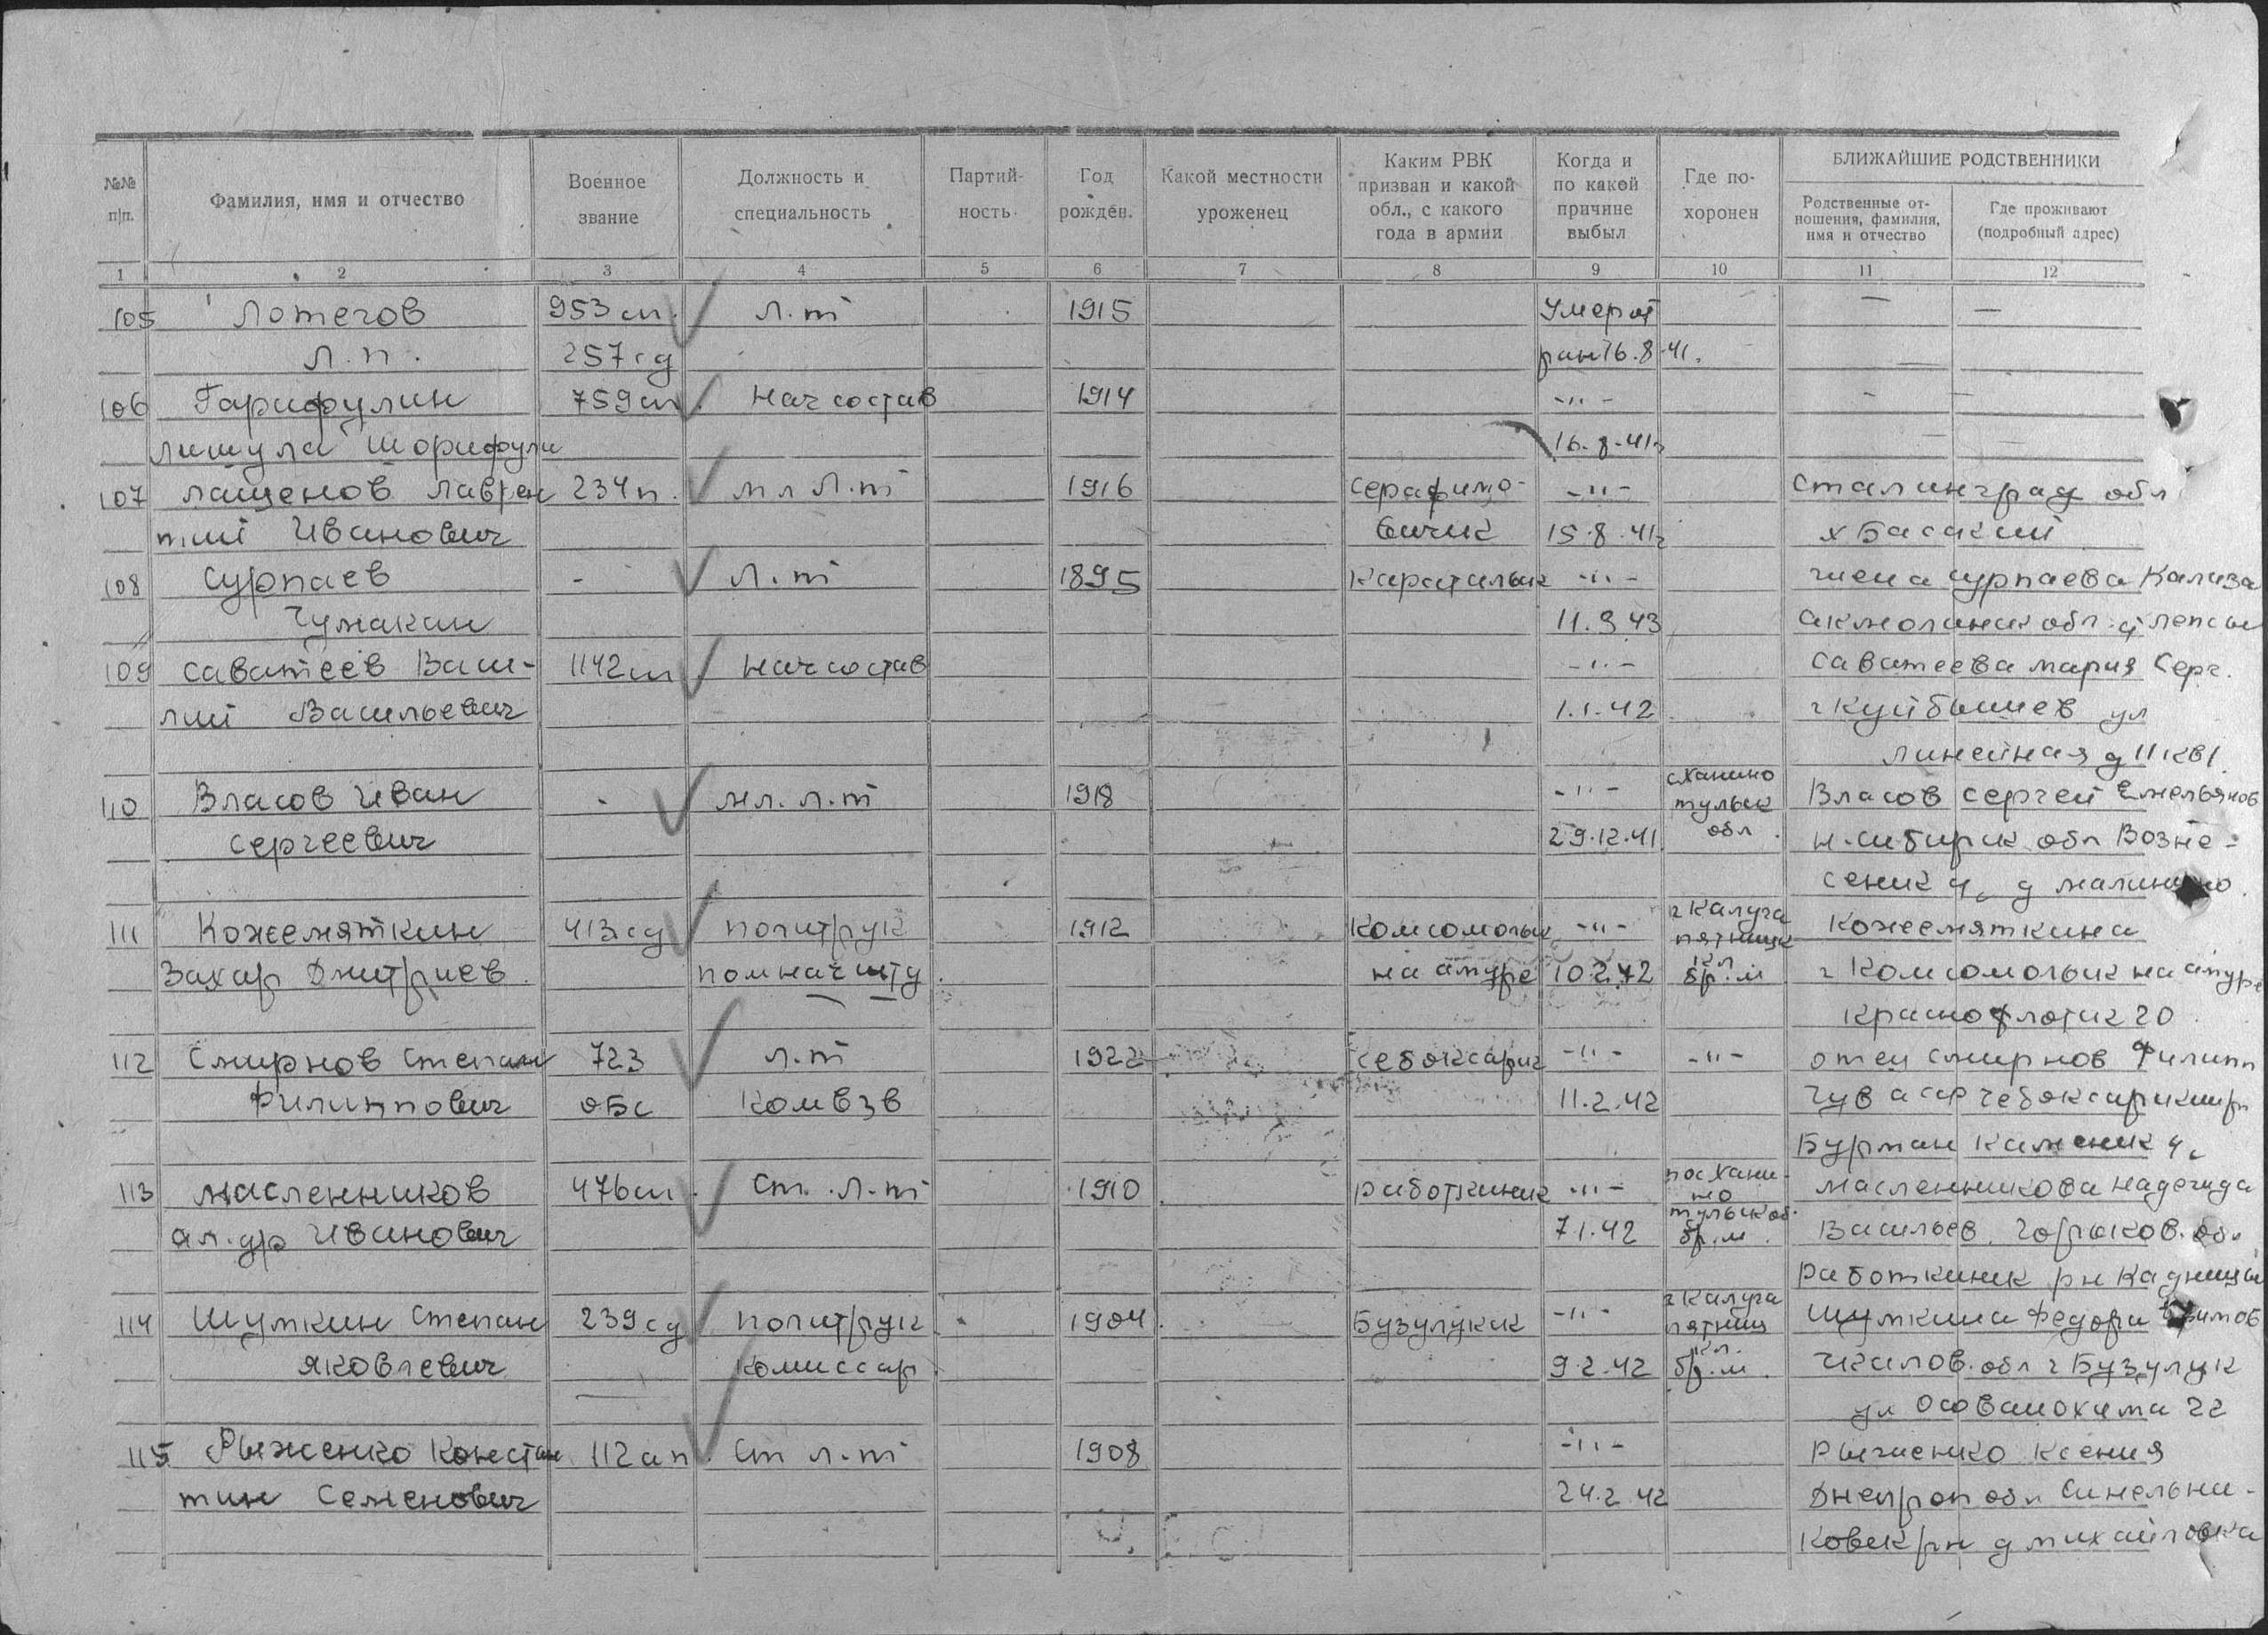 №№ п|п.
Фамилия, имя и отчество
Военное звание
Должность и специальность
Партий- ность
Год рожден.
Какой местности уроженец
Каким РВК призван и какой обл., с какого года в армии
Когда и по какой причине выбыл
Где по- хоронен
БЛИЖАЙШИЕ РОДСТВЕННИКИ
Родственные от- ношения, фамилия, имя и отчество
Где проживают (подробный адрес)
1 2 3 4 5 6 7 8 9 10 11 12
105 Лотегов 953 сп. Л.т 1915 Умер от — —
Л.п. 257 сд ран 16.8.41.
106 Гарифулин 759 сп. Начсостав 1914 -"-
16.8.41г
107 Лащенов Лаврен 234 п. мл Л.т 1916 Серафимо- -"- Сталинград обл
тий Иванович вичик 15.8.41г х Басакий
108 Сурпаев - Л.т 1895 Каратальск -"- жена Сурпаева Кализа
Чумакан 11.3.43 Акмолинск обл
109 Саватеев Васи- 1142 сп Начсостав -"- Саватеева Мария Серг.
лий Васильевич 1.1.42 г Куйбышев ул
Линейная д 11 кв 1.
110 Власов Иван - мл. л.т 1918 -"- с Ханино Тульск обл. Власов Сергей Емельянов
Сергеевич 29.12.41 Н.Сибирск обл Возне-
сенск
111 Кожемяткин 413 сд политрук 1912 Комсомольск -"- г Калуга Пятницк кл бр.м Кожемяткина
Захар Дмитриев. пом нач штд. на Амуре 10.2.42 г Комсомольск на Амуре
Краснофлотск 20
112 Смирнов Степан 723 л.т 1922 Чебоксарск -"- -"- отец Смирнов Филипп
Филиппович ОБС Комвзв 11.2.42 Чув асср Чебоксарск
113 Масленников 476 сп. Ст. л.т 1910 Работкинск -"- пос Хани- но Тульск об. бр.м. Масленникова Надежда
Ал.др Иванович 7.1.42 Васильев. Горьков. обл
Работкинск рн Кадницы
114 Шумкин Степан 239 сд политрук 1904 Бузулукск -"- г Калуга Пятниц кл. бр.м. Шумкина Федора
Яковлевич комиссар 9.2.42 Чкалов. обл г Бузулук
ул Осоваиохима 22
115 Рыженко Констан 112 ап Ст л.т 1908 -"- Рыженко Ксения
тин Семенович 24.2.42 Днепроп обл Синельни-
ковск рн д Михайловка